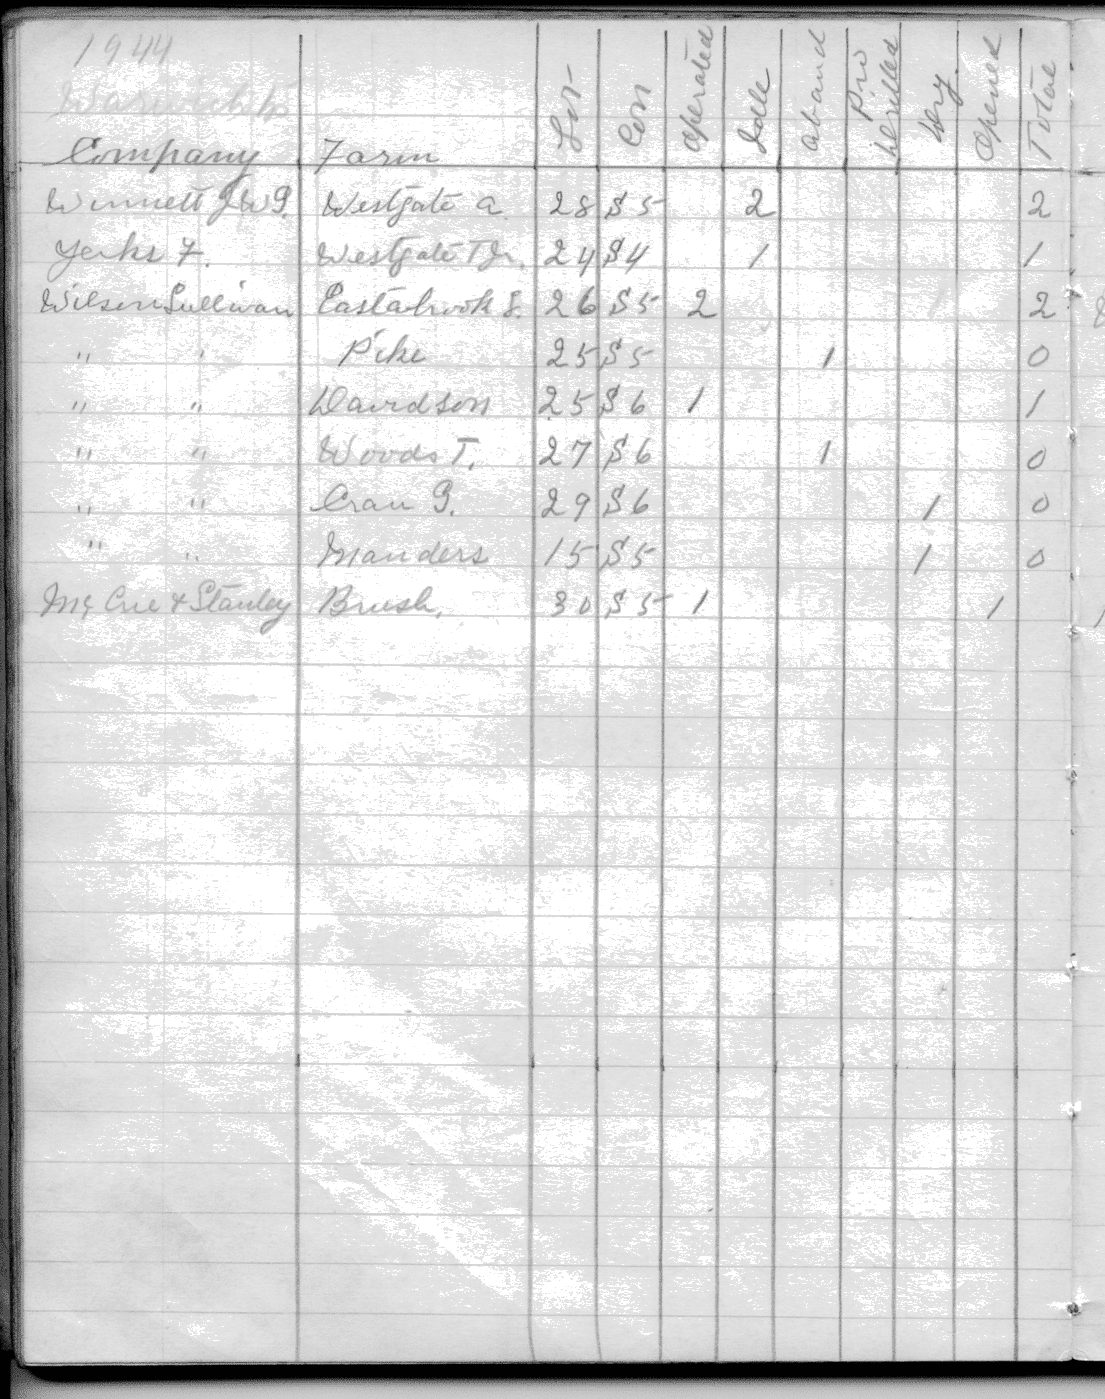 1944
Warwick Tp
Company Farm Lot Con Operated Idle Aband Pro Drilled Dry Opened Total
Winnett J W G. Westgate A. 28 S 5 2 2
Yerks F. Westgate T Jr. 24 S 4 1 1
Wilson Sullivan Eastabrook S. 26 S 5 2 2
" " Pike 25 S 5 1 0
" " Davidson 25 S 6 1 1
" " Woods T. 27 S 6 1 0
" " Cran G. 29 S 6 1 0
" " Manders 15 S 5 1 0
Mc Crie & Stanley Brush. 30 S 5 1 1